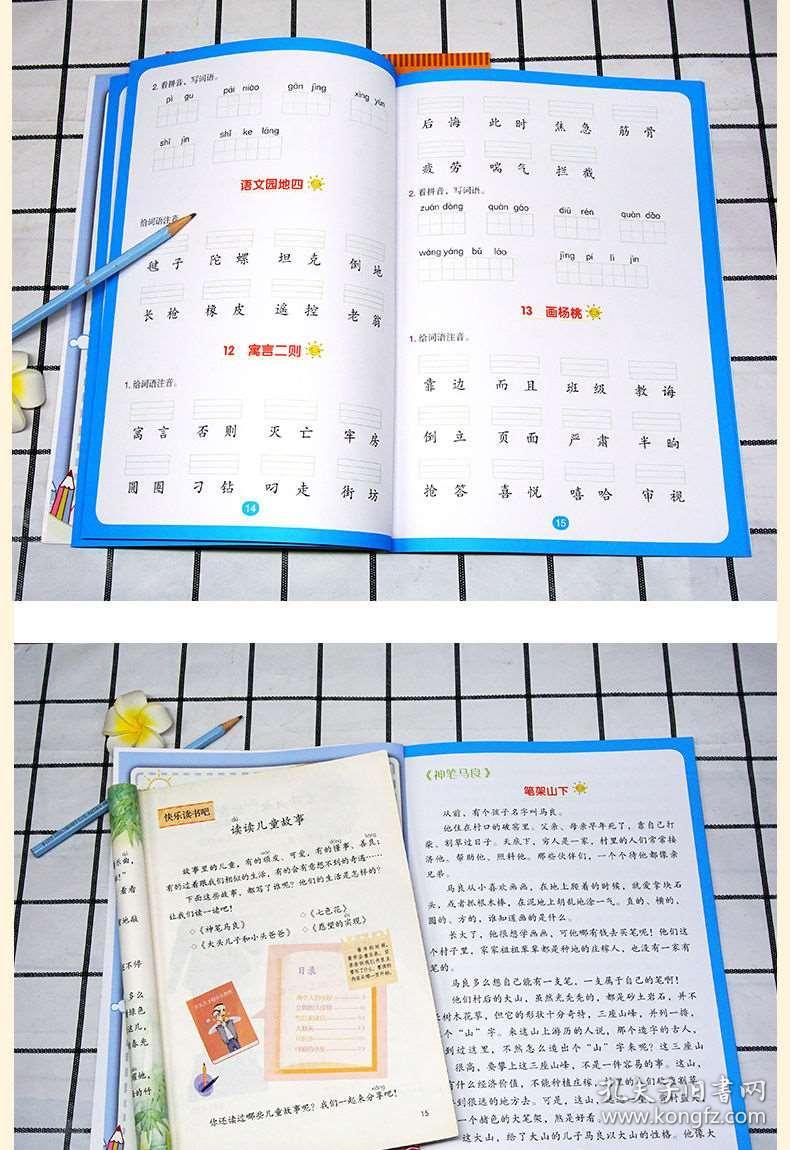 2. 看拼音，写词语。
pì gu pái niào gān jìng xìng yùn
shī jìn shī ke láng
语文园地四
给词语注音。
毽子 陀螺 坦克 倒地
长枪 橡皮 遥控 老翁
12 寓言二则
1. 给词语注音。
寓言 否则 灭亡 牢房
圆圈 刁钻 叼走 街坊
14
后悔 此时 焦急 筋骨
疲劳 喘气 拦截
2. 看拼音，写词语。
zuān dòng quàn gào diū rén quàn dǎo
wáng yáng bǔ láo jīng pí lì jìn
13 画杨桃
1. 给词语注音。
靠边 而且 班级 教诲
倒立 页面 严肃 半晌
抢答 喜悦 嘻哈 审视
15
快乐读书吧
dú
读读儿童故事
故事里的儿童，有的顽皮、可爱，有的懂事、善良；
有的过着跟我们相似的生活，有的会有意想不到的奇遇……
下面这些故事，都写了谁呢？他们的生活是怎样的？
让我们读一读吧！
◇《神笔马良》 ◇《七色花》
◇《大头儿子和小头爸爸》 ◇《愿望的实现》
目录
你还读过哪些儿童故事呢？我们一起来分享吧！
15
《神笔马良》
笔架山下
从前，有个孩子名字叫马良。
他住在村口的破窑里。父亲、母亲早年死了，靠自己打
柴、割草过日子。天底下，穷人是一家，村里的人们常常接
济他、帮助他、照料他。那些伙伴们，一个个待他都像亲
兄弟。
马良从小喜欢画画，在地上爬着的时候，就爱拿块石
头，或者抓根木棒，在泥地上胡乱地涂一气。直的、横的，
圆的、方的，谁知道画的是什么。
长大了，他很想学画画，可他哪有钱去买笔呢！他们这
个村子里，家家祖祖辈辈都是种地的庄稼人，也没有一家有
笔的。
马良多么想自己能有一支笔，一支属于自己的笔啊！
他们村后的大山，虽然光秃秃的，都是砂土岩石，并不
长树木花草，但它的形状十分奇特，三座山峰，并列一排，
个“山”字。来这山上游历的人说，那个造字的古人，
到过这里，不然怎么造出个“山”字来呢？这三座山
很高，要攀上这三座山峰，不是一件容易的事。这山，
有什么经济价值，不能种植庄稼，
一个赭色的大笔架，煞是好看。
这大山，给了大山的儿子马良以大山的性格。他像大
孔夫子旧书网
www.kongfz.com